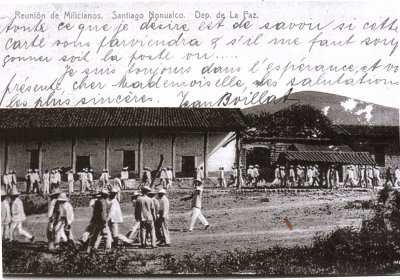 Reunión de Milicianos. Santiago Nonualco. Dep. de La Paz.
toute ce que je desire est de savoir si cette
carte vous parviendra & s'il me faut soup
çonner soit la poste ou....
Je suis toujours dans l'espérance, et vo
présente, cher Mademoiselle, mes salutations
les plus sincères. Jean Boillat